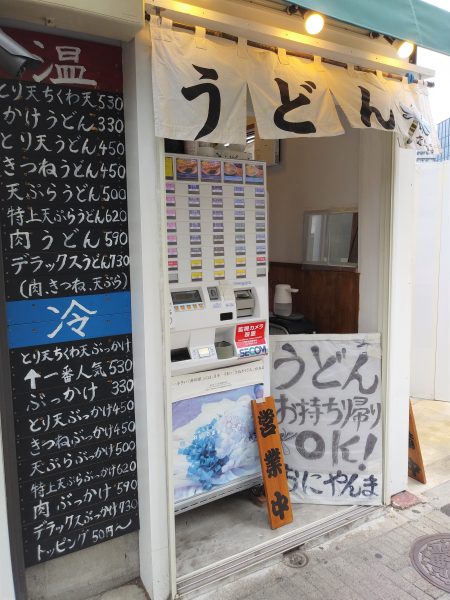 温
とり天ちくわ天530
かけうどん330
とり天うどん450
きつねうどん450
天ぷらうどん500
特上天ぷらうどん620
肉うどん590
デラックスうどん730
(肉、きつね、天ぷら)
冷
とり天ちくわ天ぶっかけ
↑一番人気530
ぶっかけ330
とり天ぶっかけ450
きつねぶっかけ450
天ぷらぶっかけ500
特上天ぷらぶっかけ620
肉ぶっかけ590
デラックスぶっかけ730
トッピング50円〜
うどん
監視カメラ
設置
SECOM
営業中
うどん
お持ち帰り
OK!
おにやんま